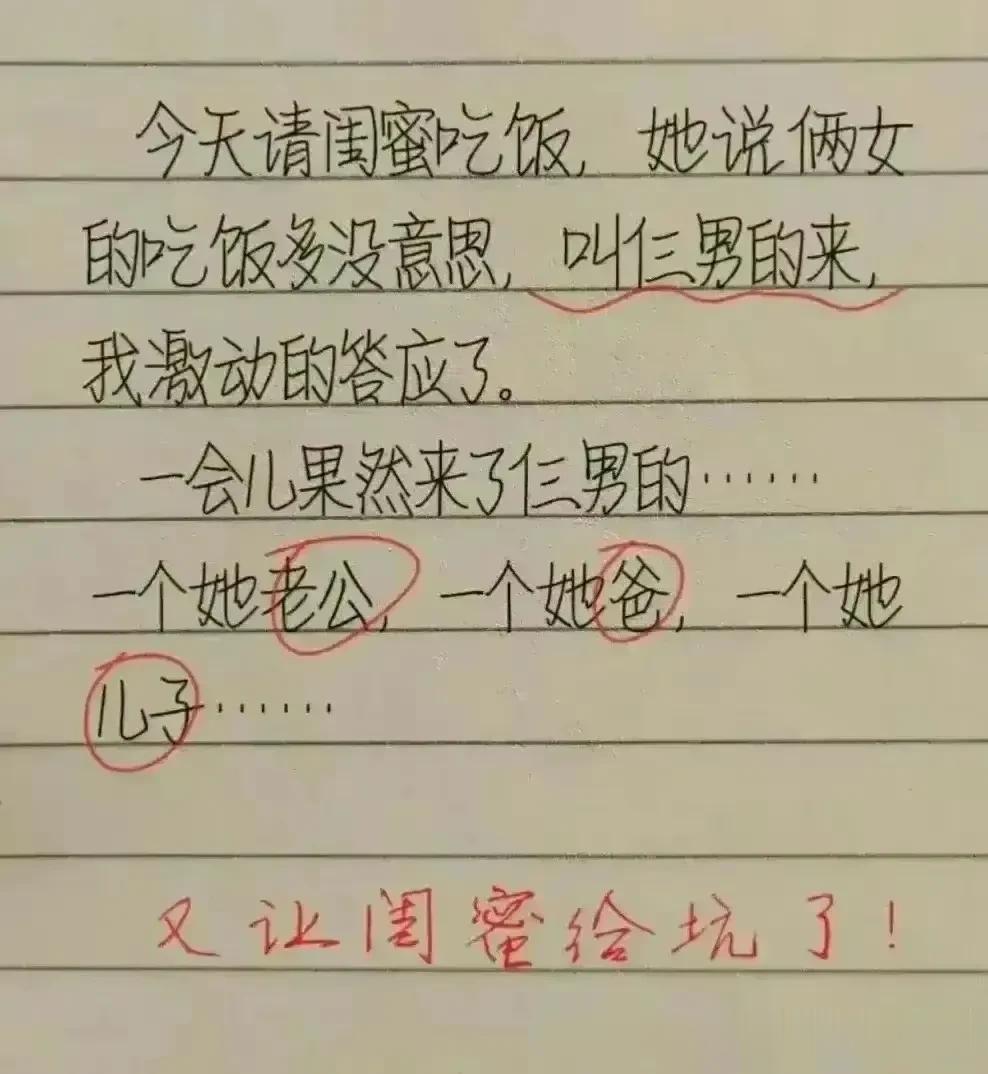 今天请闺蜜吃饭,她说俩女
的吃饭多没意思,叫仨男的来,
我激动的答应了。
一会儿果然来了仨男的……
一个她老公,一个她爸,一个她
儿子……
又让闺蜜给坑了!